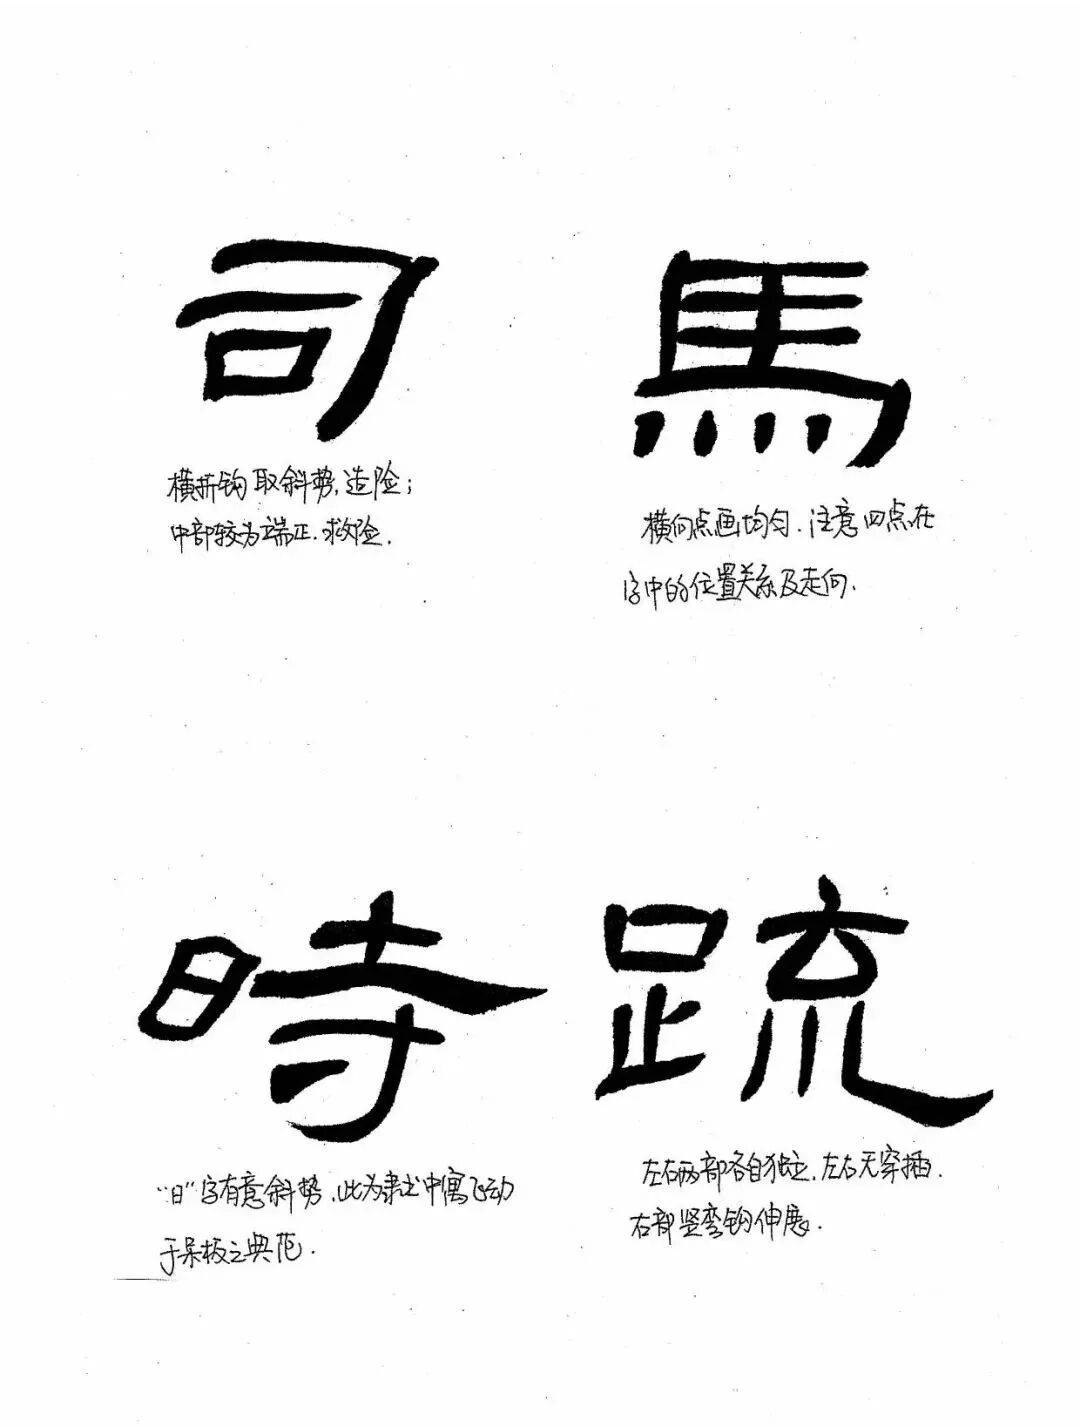 司
横折钩取斜势，造险；
中部较为端正，求险．
馬
横向点画均匀．注意四点在
字中的位置关系及走向．
時
“日”字有意斜势，此为隶书中寓飞动
于呆板之典范．
疏
左右两部各自独立，左右无穿插．
右部竖弯钩伸展．